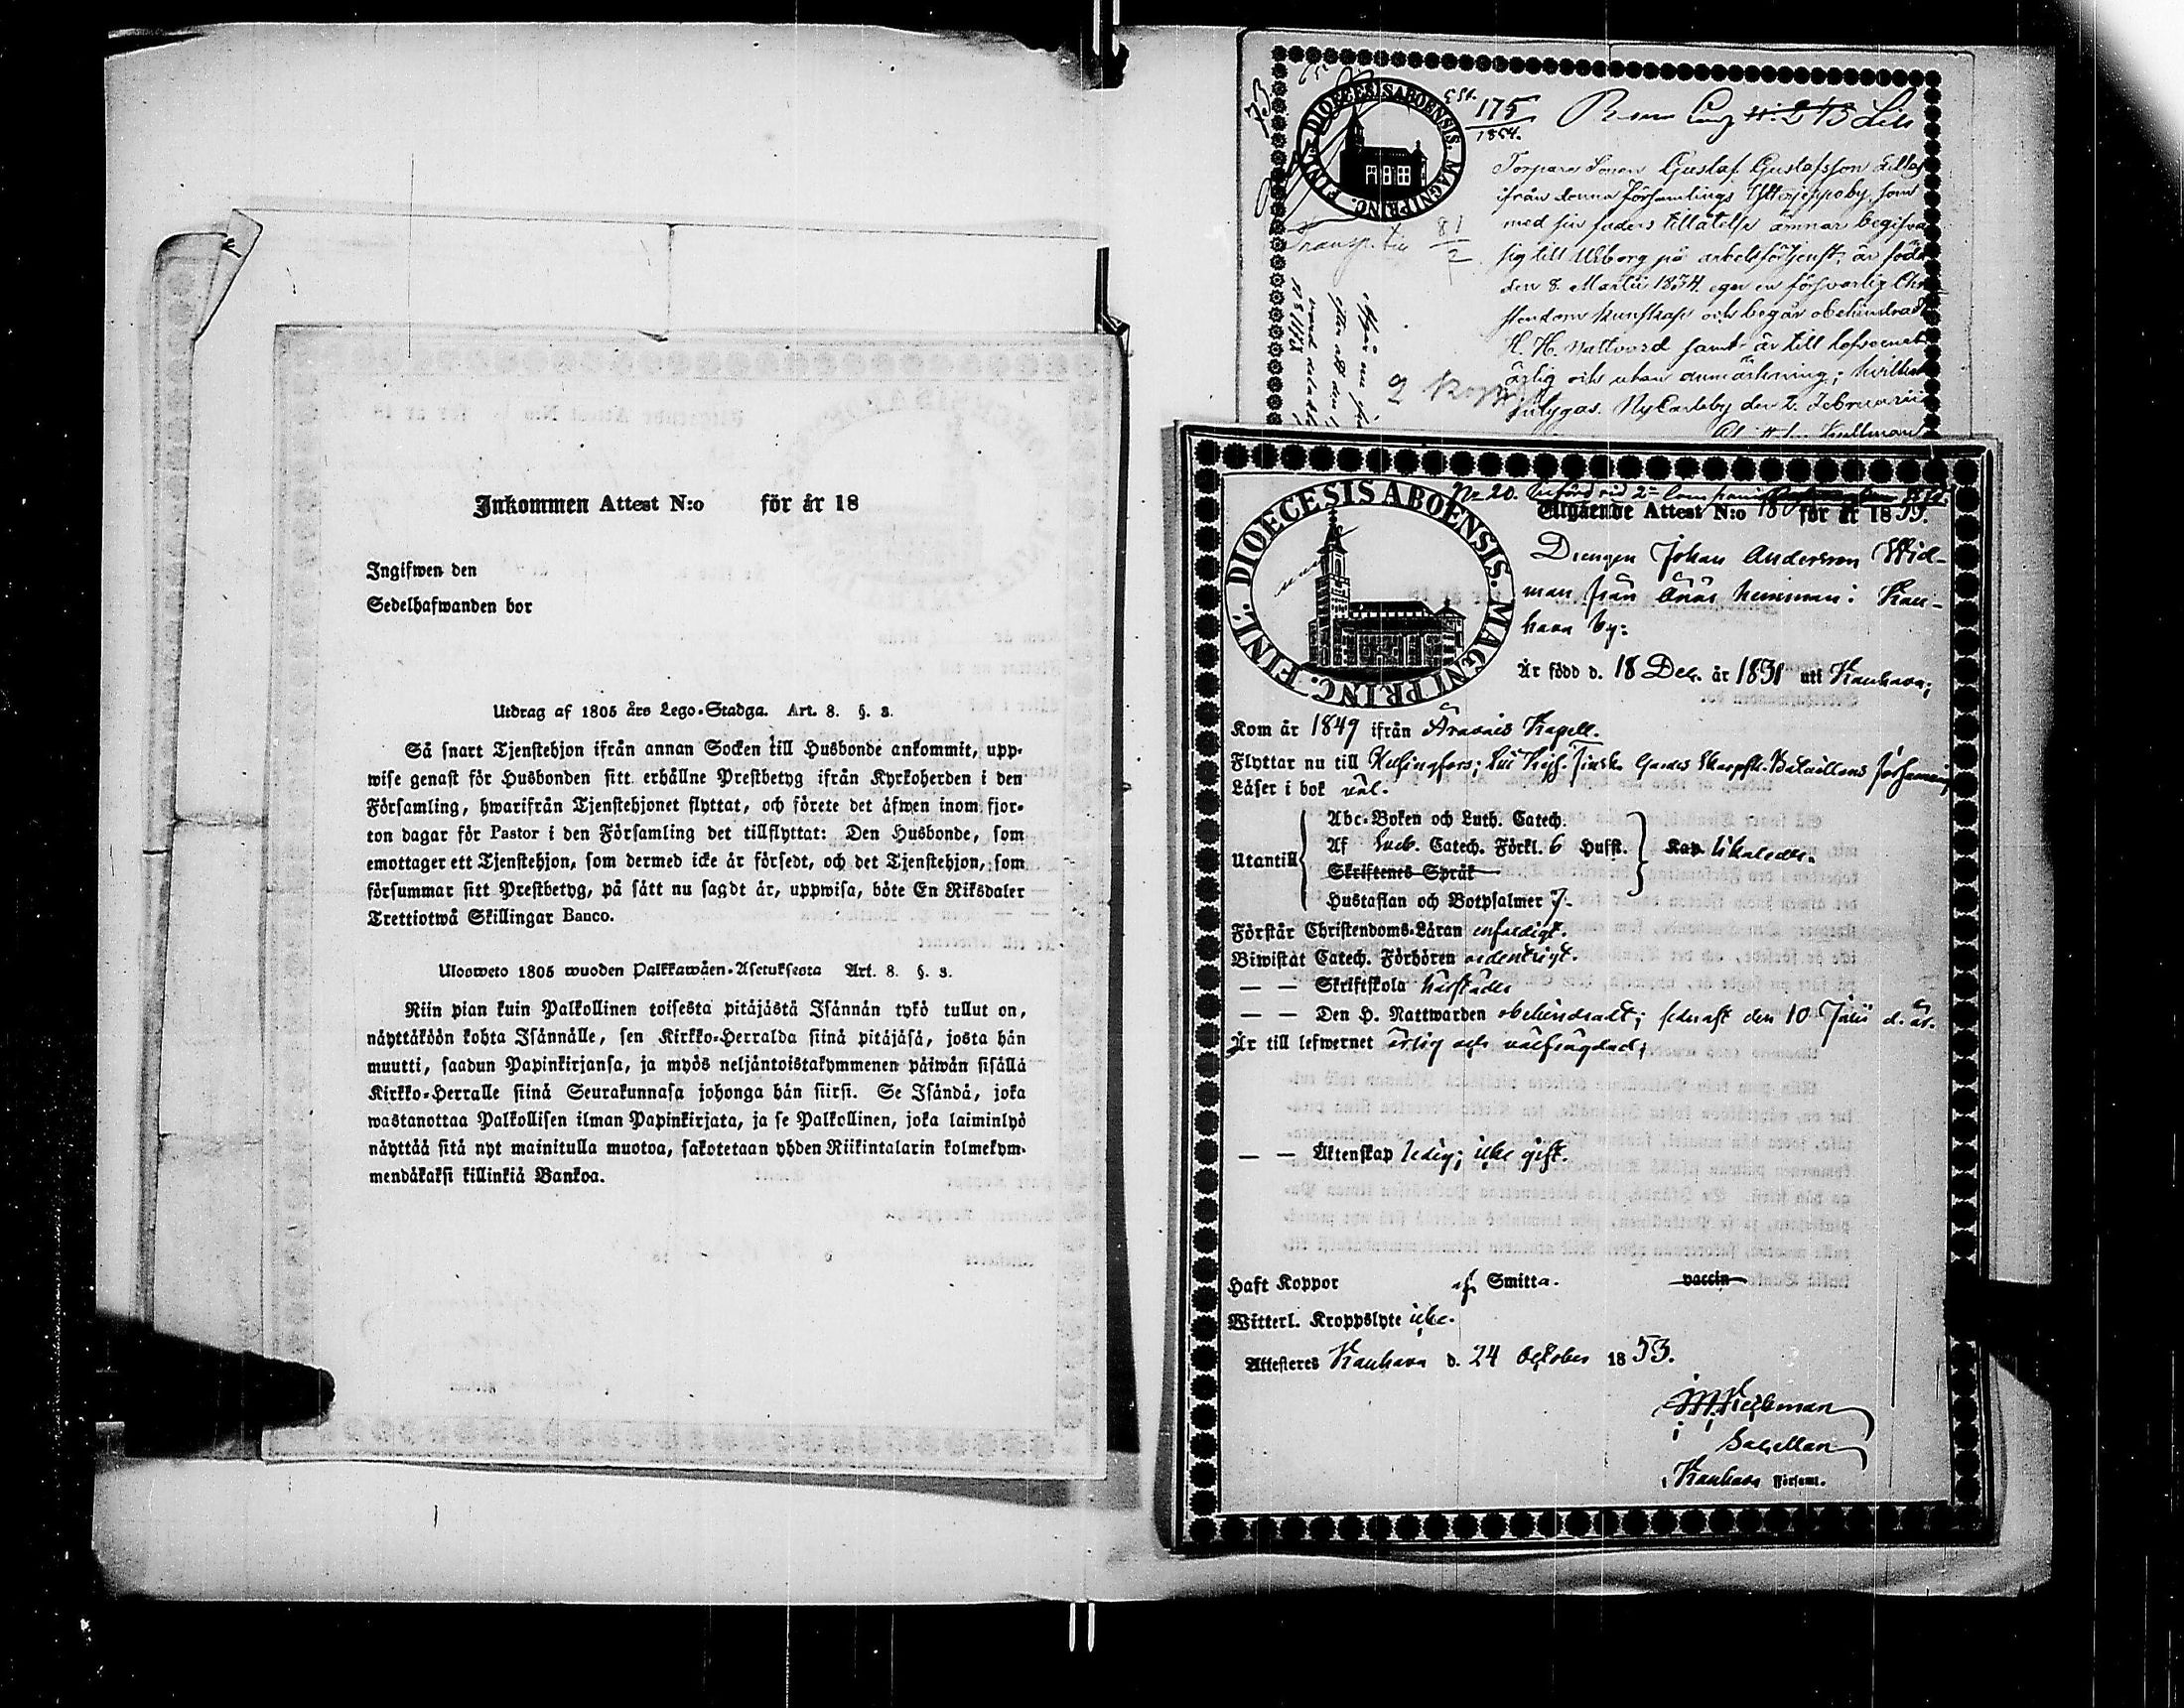 Inkommen Attest N:o för år 18
Ingifwen den
Sedelhafwanden bor
Utdrag af 1805 års Lego-Stadga. Art. 8. §. 3.
Så snart Tjenstehjon ifrån annan Socken till Husbonde ankommit, upp-
wise genast för Husbonden sitt erhållne Prestbetyg ifrån Kyrkoherden i den
Församling, hwarifrån Tjenstehjonet flyttat, och förete det äfwen inom fjor-
ton dagar för Pastor i den Församling det tillflyttat: Den Husbonde, som
emottager ett Tjenstehjon, som dermed icke är försedt, och det Tjenstehjon, som
försummar sitt Prestbetyg, på sätt nu sagdt är, uppwisa, böte En Riksdaler
Trettiotwå Skillingar Banco.
Ulosweto 1805 wuoden Palkkawäen-Asetuksesta Art. 8. §. 3.
Niin pian kuin Palkollinen toisesta pitäjästä Isännän tykö tullut on,
näyttäköön kohta Isännälle, sen Kirkko-Herralda siinä pitäjäsä, josta hän
muutti, saadun Papinkirjansa, ja myös neljäntoistakymmenen päiwän sisällä
Kirkko-Herralle siinä Seurakunnasa johonga hän siirsi. Se Isändä, joka
wastanottaa Palkollisen ilman Papinkirjata, ja se Palkollinen, joka laiminlyö
näyttää sitä nyt mainitulla muotoa, sakotetaan yhden Riikintalarin kolmekym-
mendäkaksi killinkiä Bankoa.
73
DIOECESIS ABOENSIS. MAGNI PRINC. FINL.
175
1854.
Torpare Sonen Gustaf Gustafsson
ifrån denna Församlings Ytterjeppo by, som
med sin faders tillåtelse ämnar begifva
sig till Wiborg på arbetsförtjenst, är född
den 8. Martii 1834. eger en försvarlig Chri-
stendoms kunskap och begår obehindradt
H. H. Nattvard samt är till lefvernet
ärlig och utan anmärkning; hvilket
intygas. NyCarleby den 2. Februarii
Transp. till 81
2
DIOECESIS ABOENSIS. MAGNI PRINC. FINL.
No 20. Införd vid 2:a Compani
Utgående Attest N:o 18 för år 1853.
Drengen Johan Andersson Wid-
man från Önäs hemman i Kau-
hava by:
Är född d. 18 Dec. år 1831 uti Kauhava;
Kom år 1849 ifrån Kapell.
Flyttar nu till Helsingfors; Lif Finska Gardes Skarpsk. Bataillons församling
Läser i bok väl.
Utantill
Abc-Boken och Luth. Catech.
Af Sveb. Catech. Förkl. 6 Hufst.
Skriftenes Språk
Hustaflan och Botpsalmer 7.
Kap likaledes.
Förstår Christendoms-Läran enfaldigt.
Biwistat Catech. Förhören ordentligt.
— — Skriftskola härstädes
— — Den H. Nattwarden obehindradt; sednast den 10 Julii d. år.
Är till lefwernet ärlig och välfrägdad;
— — Äktenskap ledig; icke gift.
Haft Koppor af Smitta. vaccin
Witterl. Kroppslyte icke.
Attesteres Kauhava d. 24 October 1853.
Sacellan
i Kauhava Församl.